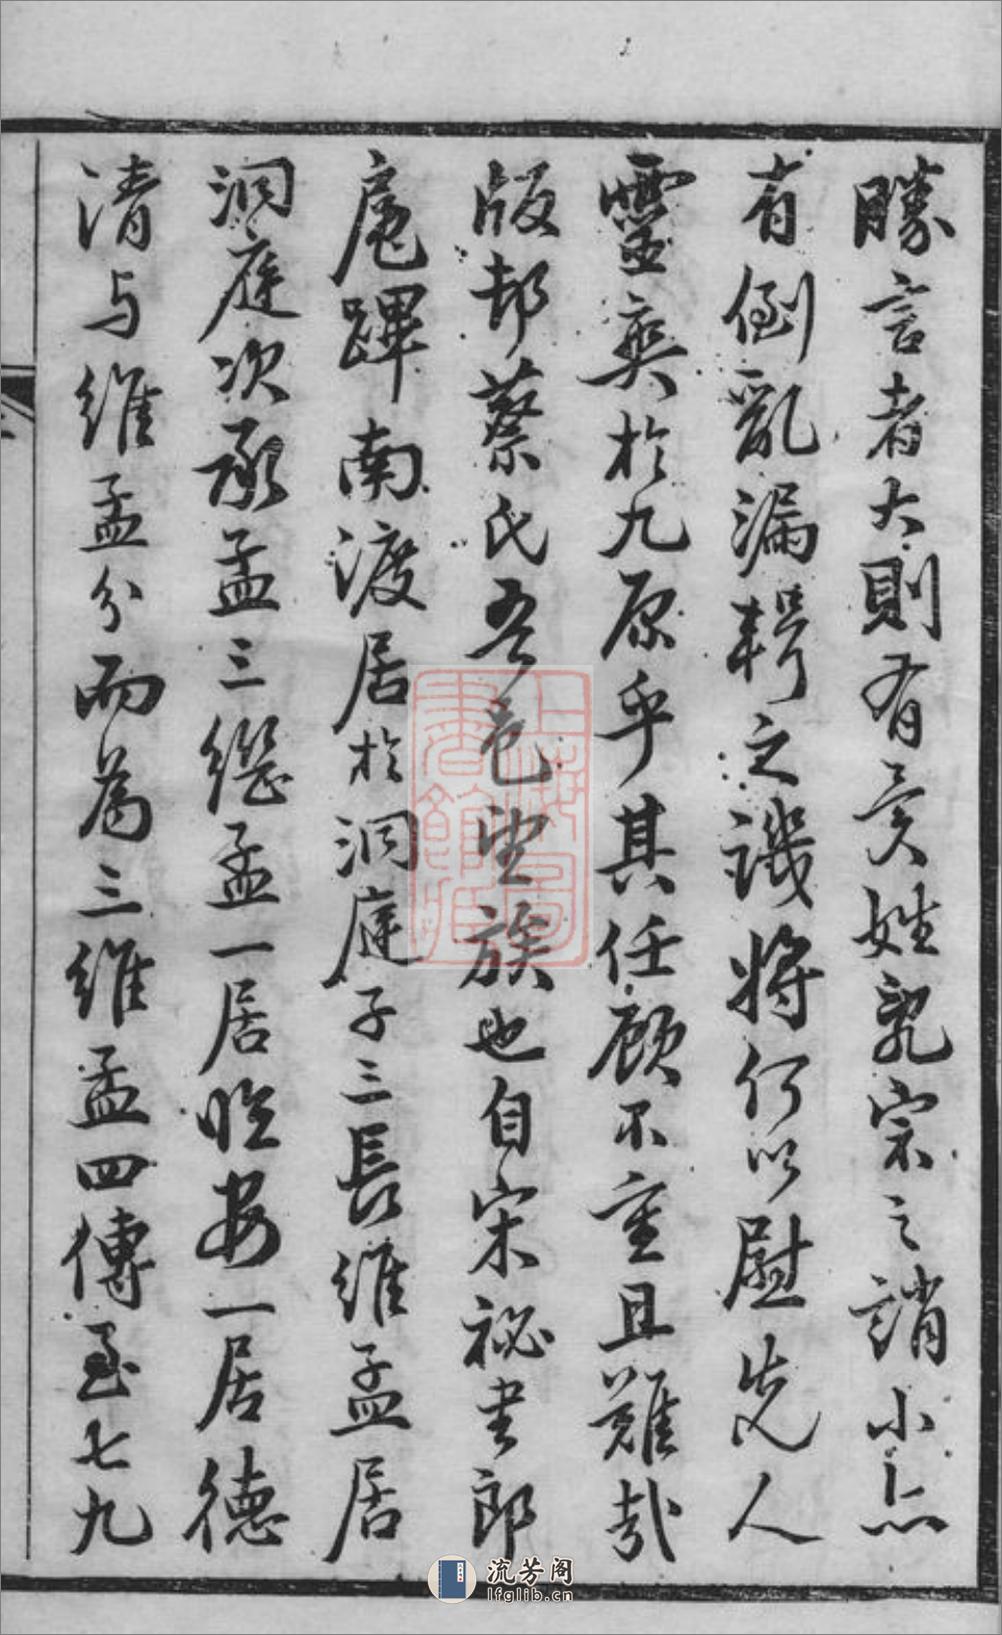 勝言者大則有異姓亂宗之誚小亦
有倒亂漏輯之譏將何以慰先人
靈爽於九原乎其任顧不重且難哉
版邨蔡氏吾邑望族也自宋祕書郎
扈蹕南渡居於洞庭子三長維孟居
洞庭次承孟三繼孟一居臨安一居德
清与維孟分而為三維孟四傳至七九
流芳阁
lfglib.cn